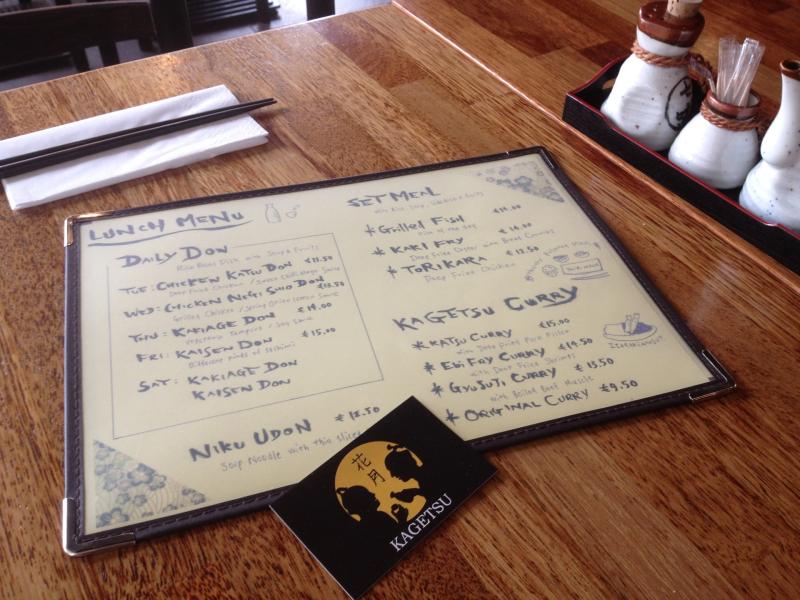 LUNCH MENU
DAILY DON
Rice Bowl Dish with Soup & Fruits
TUE: CHICKEN KATSU DON 11.50
Deep Fried Chicken / Sweet Chilli Mayo Sauce
WED: CHICKEN NEGI SHIO DON 13.50
Grilled Chicken / Spring Onion Lemon Sauce
THU: KAKIAGE DON 14.00
Vegetable Tempura / Soy Sauce
FRI: KAISEN DON 15.00
Different kinds of Sashimi
SAT: KAKIAGE DON
KAISEN DON
NIKU UDON 12.50
Soup Noodle with thin slices
SET MEAL
with Rice, Soup, & Fruits
* Grilled Fish 14.00
Fish of the day
* KAKI FRY 14.00
Deep Fried Oyster with Bread Crumbs
* TORIKARA 12.50
Deep Fried Chicken
KAGETSU CURRY
* KATSU CURRY 15.00
with Deep Fried Pork Fillet
* Ebi FRY CURRY 14.50
with Deep Fried Shrimps
* GYUSUJI CURRY 13.50
with Boiled Beef Muscle
* ORIGINAL CURRY 9.50
Itadakimasu!
花月
KAGETSU